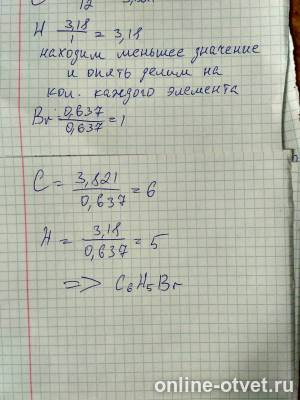 H 3,18/1 = 3,18
находим меньшее значение
и опять делим на
кол. каждого элемента
Br 0,637/0,637 = 1
C = 3,821/0,637 = 6
H = 3,18/0,637 = 5
=> C₆H₅Br
online-otvet.ru